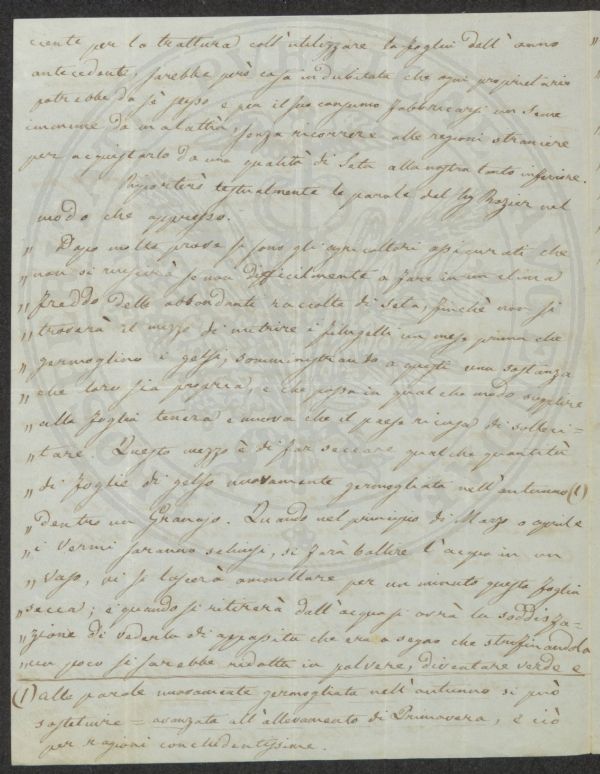 ciente per la trattura coll'utilizzare la foglia dell'anno
antecedente, sarebbe però cosa indubitata che ogni proprietario
potrebbe da sè stesso e per il suo consumo fabbricarsi un seme
immune da malattia, senza ricorrere alle regioni straniere
per acquistarlo da una qualità di Seta alla nostra tanto inferiore.
Riporterò testualmente le parole del Sig Rozier nel
modo che appresso.
„ Dopo molte prove si sono gli agricoltori assicurati che
„ non si riuscirà se non difficilmente a fare in un clima
„ freddo delle abbondante raccolta di seta, finchè non si
„ troverà il mezzo di nutrire i filugelli un mese prima che
„ germoglino i gelsi, somministrando a questi una sostanza
„ che loro sia propria, e che possa in qualche modo supplire
„ alla foglia tenera e nuova che il paese ricusa di solleci=
„ tare. Questo mezzo è di far seccare qualche quantità
„ di foglie di gelso nuovamente germogliata nell'autunno (1)
„ dentro un Granajo. Quando nel principio di Marzo o aprile
„ i Vermi saranno schiusi, se farà bollire l'acqua in un
„ vaso, vi si lascerà ammollare per un minuto questa foglia
„ secca; e quando si ritirerà dall'acqua si avrà la soddisfa=
„ zione di vederla di appassita che era a segno che strofinandola
„ un poco si sarebbe ridotta in polvere, diventare verde e
(1) alle parole nuovamente germogliata nell'autunno si può
sostituire = avanzata all'allevamento di Primavera, e ciò
per ragioni concludentissime.